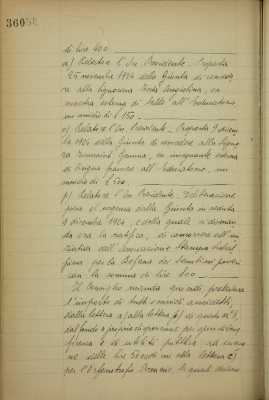 360
di lire 400.
n) Relatore l'On. Presidente. Proposta
25 novembre 1924 della Giunta di concede-
re alla Signorina Angiolina, ex
maestra esterna di all'Educatorio
un sussidio di £ 150.
o) Relatore l'On. Presidente. Proposta 9 dicem-
bre 1924 della Giunta di concedere alla Signo-
ra Gemma, ex insegnante esterna
di lingua francese all'Educatorio, un
sussidio di £ 200.
p) Relatore l'On. Presidente. Deliberazione
presa d'urgenza dalla Giunta in seduta
9 dicembre 1924, e della quale si doman-
da ora la ratifica, di concorrere all'ini-
ziativa dell'Associazione Stampa
per la Befana dei bambini poveri
con la somma di lire 800
Il Consiglio quindi, prelevare
l'importo di tutti i sussidi anzidetti,
dalla lettera a) alla lettera p) di questo n° 8,
dal fondo a propria disposizione per opere di bene-
ficenza e di utilità pubblica, ad ecce-
zione delle lire di cui alla lettera c)
per l'Orfanotrofio Armeno, le quali